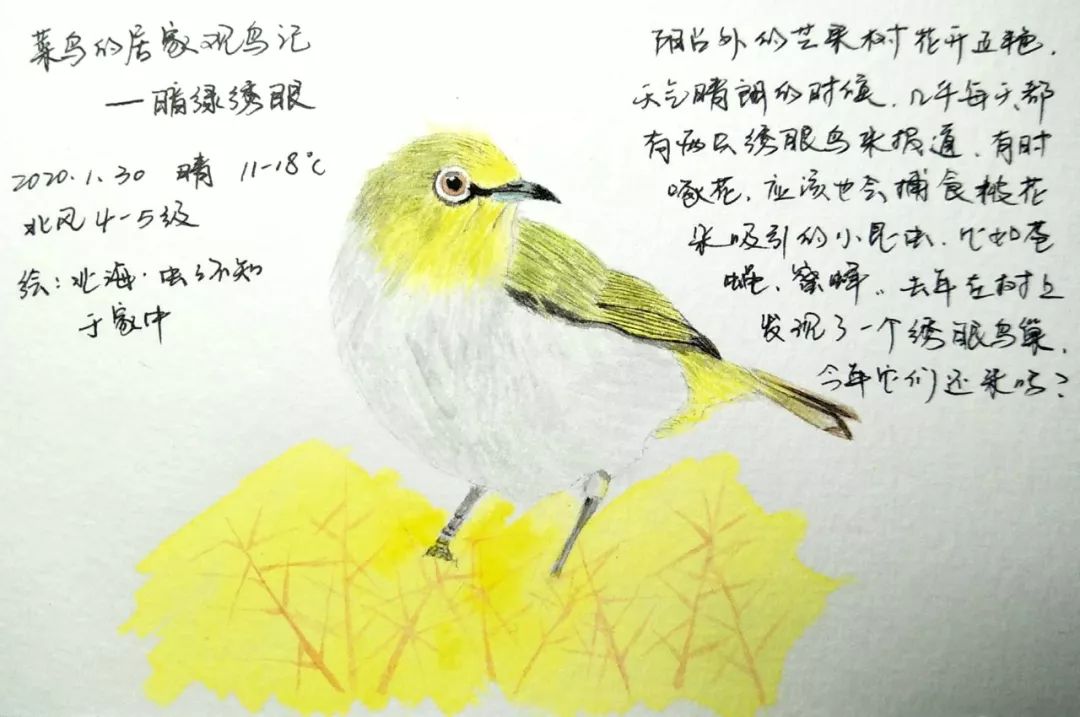 菜鸟的居家观鸟记
—暗绿绣眼
2020.1.30 晴 11-18℃
北风4-5级
绘:北海·虫须知
于家中
阳台外的芒果树花开正艳,
天气晴朗的时候,几乎每天都
有两只绣眼鸟来报道,有时
啄花,应该也会捕食被花
朵吸引的小昆虫,比如苍
蝇、蜜蜂.. 去年在树上
发现了一个绣眼鸟巢,
今年它们还来吗?